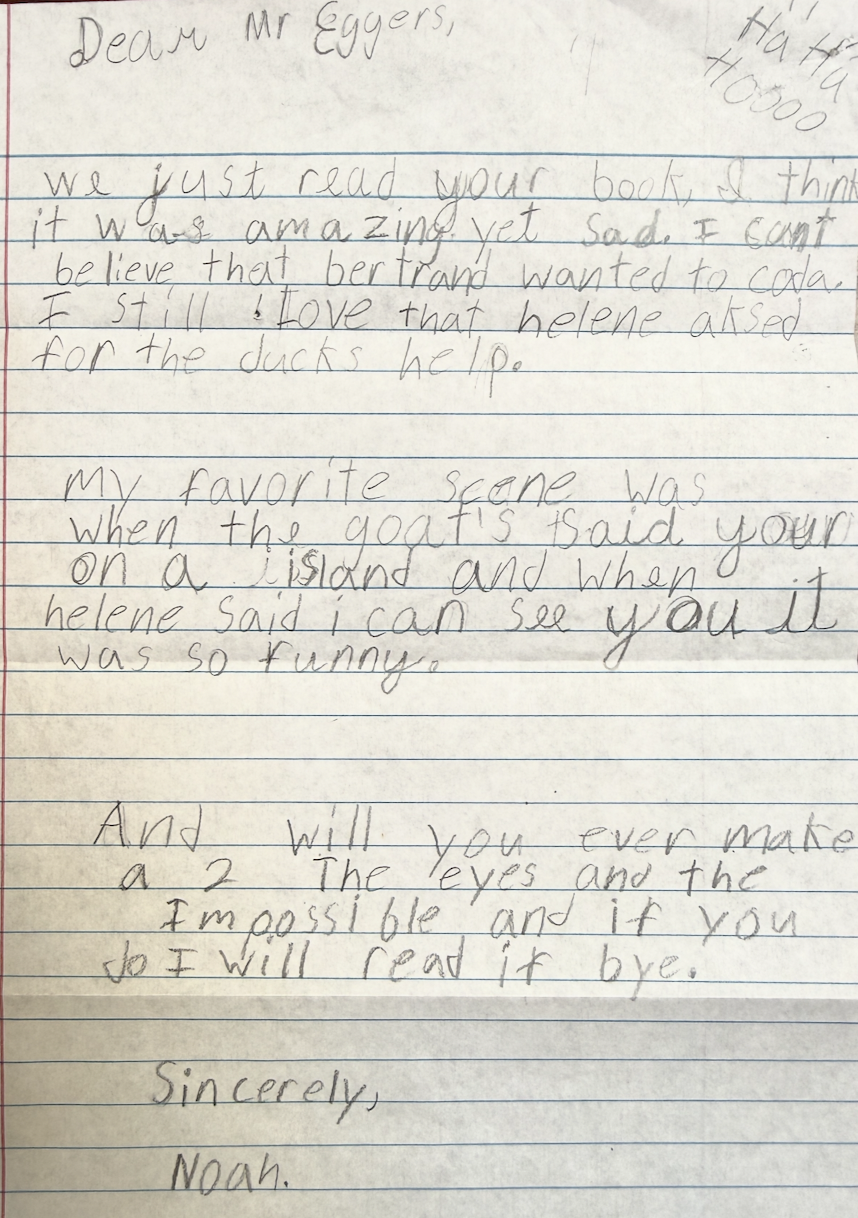 Dear Mr Eggers,
Ha Ha
Hoooo
we just read your book, I think
it was amazing yet sad. I cant
believe that bertrand wanted to coda.
I still love that helene aksed
for the ducks help.
My favorite scene was
when the goat's said your
on a island and when
helene said i can see you it
was so funny.
And will you ever make
a 2 The eyes and the
Impossible and if you
do I will read it bye.
Sincerely,
Noah.